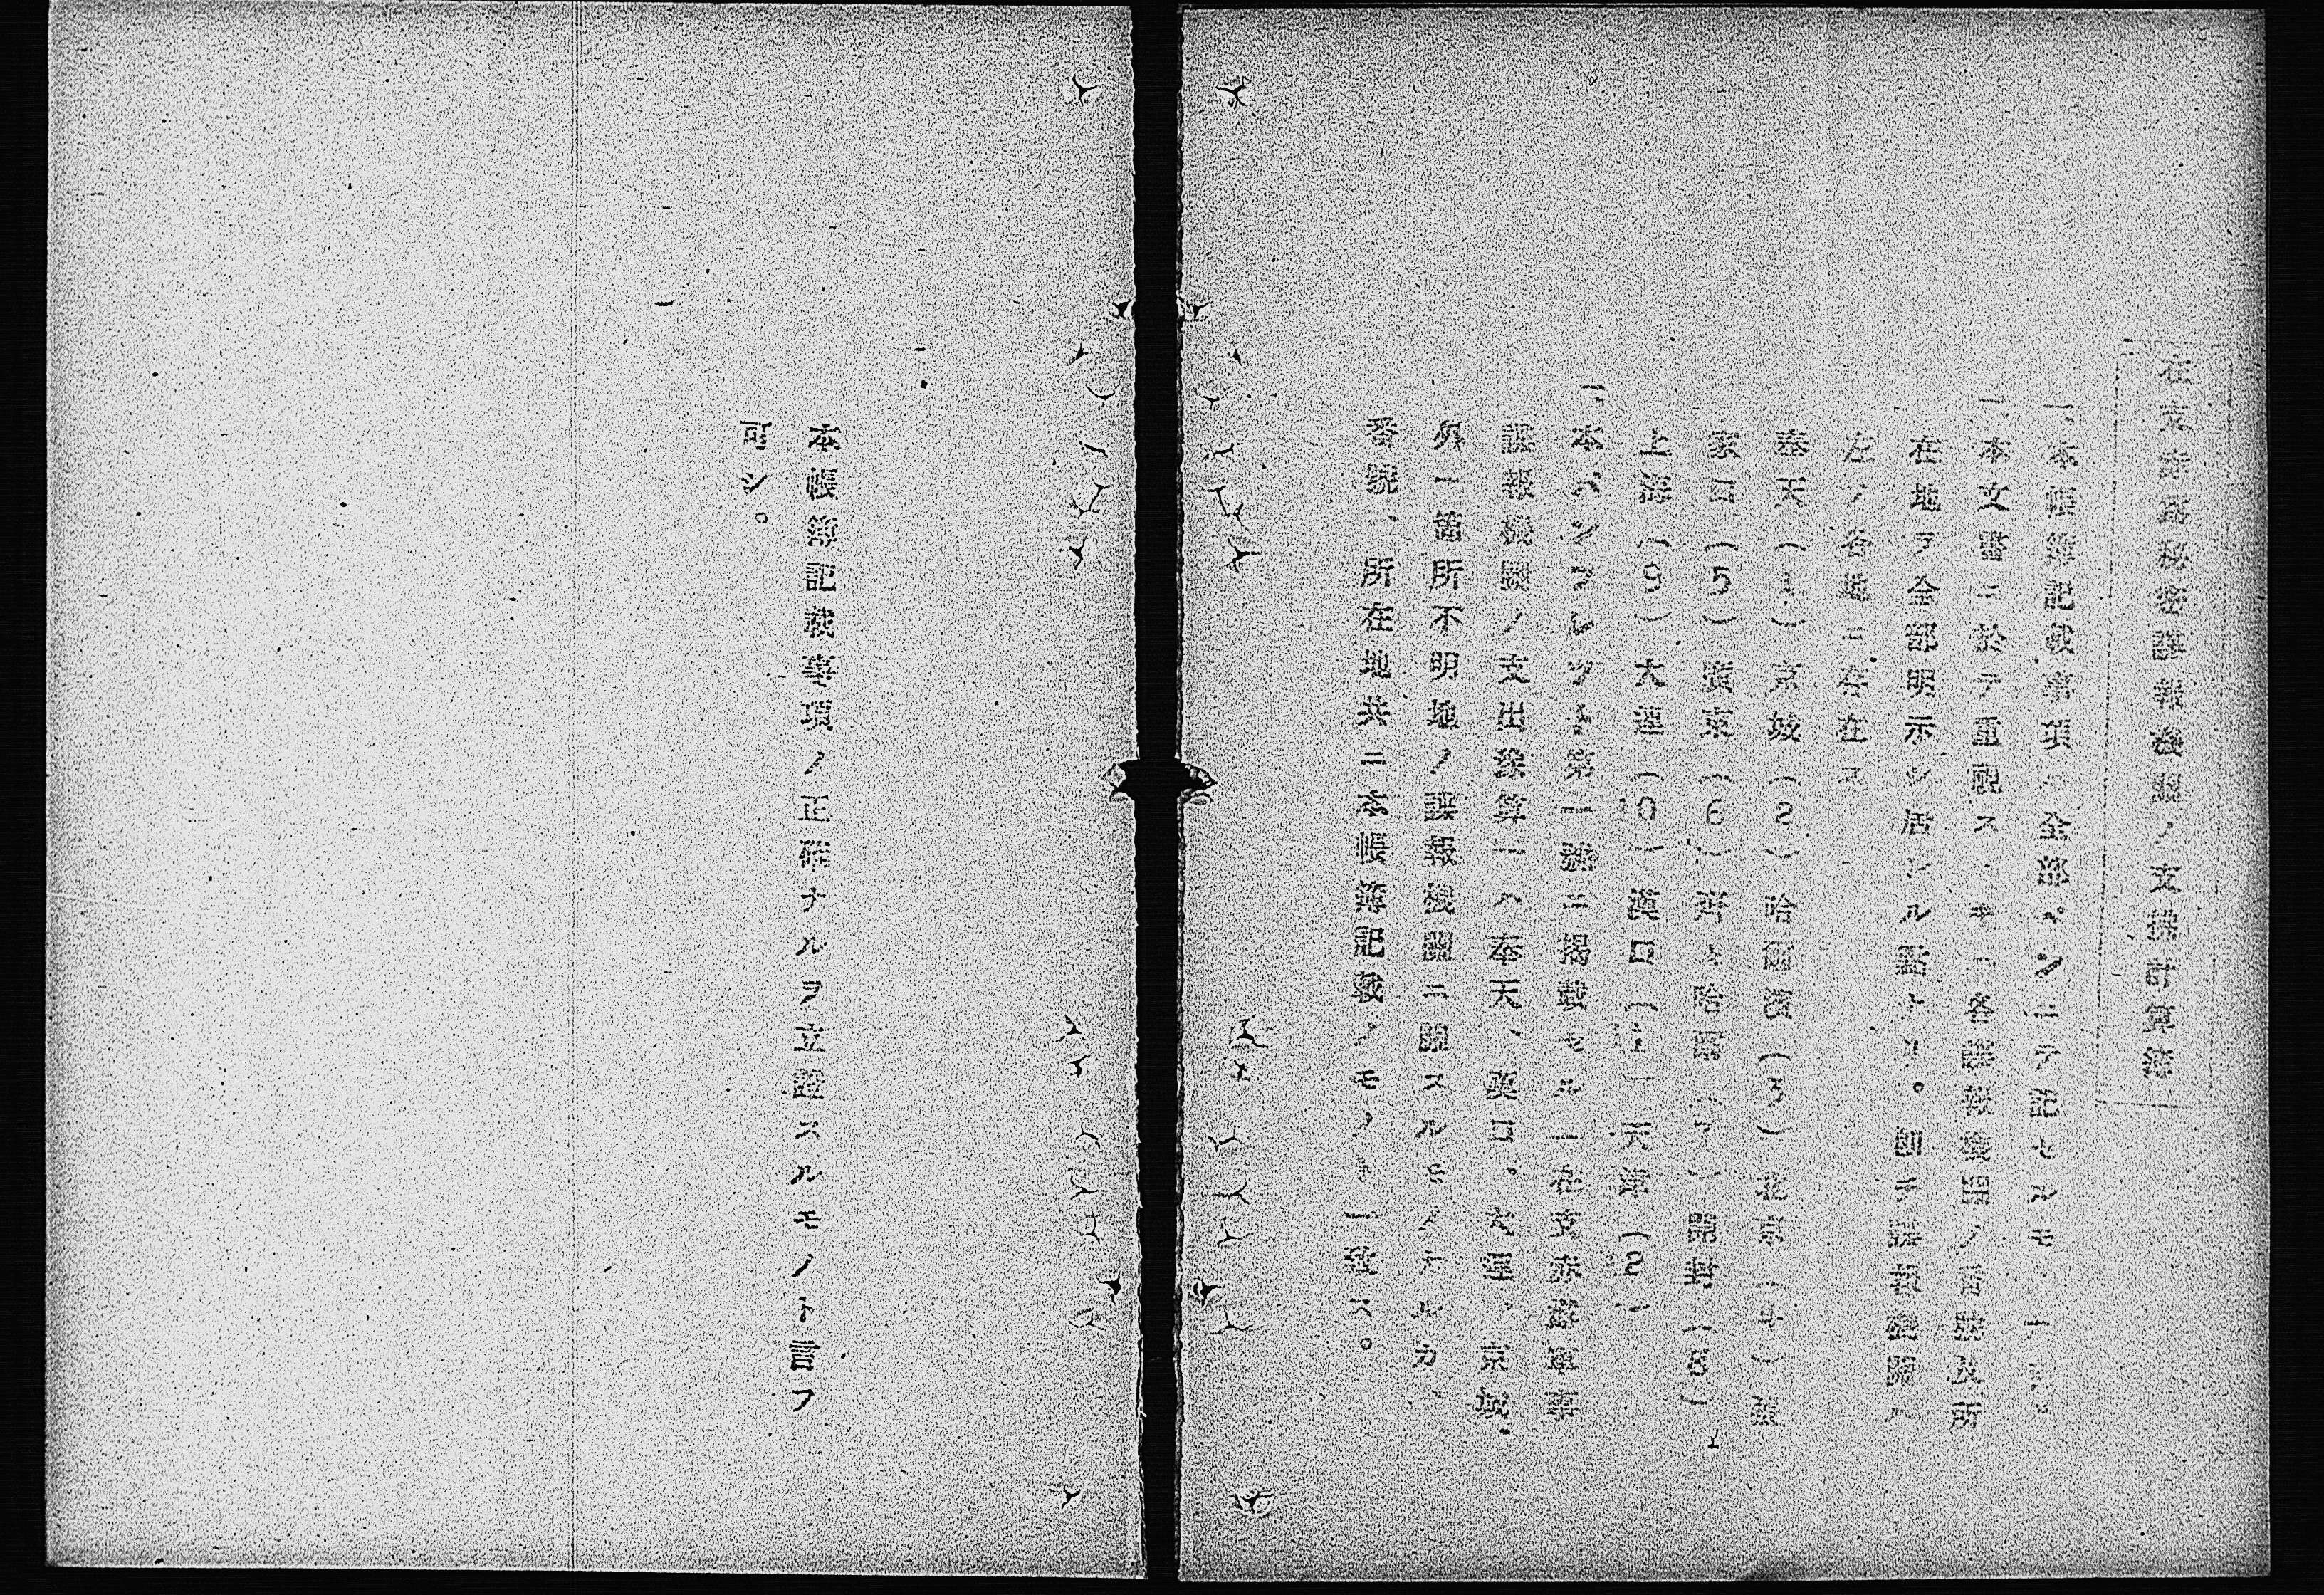 在支赤露秘密諜報機關ノ支拂計算簿
一、本帳簿記載事項ハ全部ペンニテ記セルモノナリ。
一、本文書ニ於テ重視スヘキハ各諜報機關ノ番號及所
在地ヲ全部明示シ居レル點ナリ。即チ諜報機關ハ
左ノ各地ニ存在ス
奉天(1)京城(2)哈爾濱(3)北京(4)張
家口(5)廣東(6)齊々哈爾(7)開封(8)
上海(9)大連(10)漢口(11)天津(12)
一、本パンフレツト第一號ニ揭載セル「在支赤露軍事
諜報機關ノ支出豫算」ハ奉天、漢口、大連、京城、
外一箇所不明地ノ諜報機關ニ關スルモノナルカ、
番號、所在地共ニ本帳簿記載ノモノト一致ス。
本帳簿記載事項ノ正確ナルヲ立證スルモノト言フ
可シ。